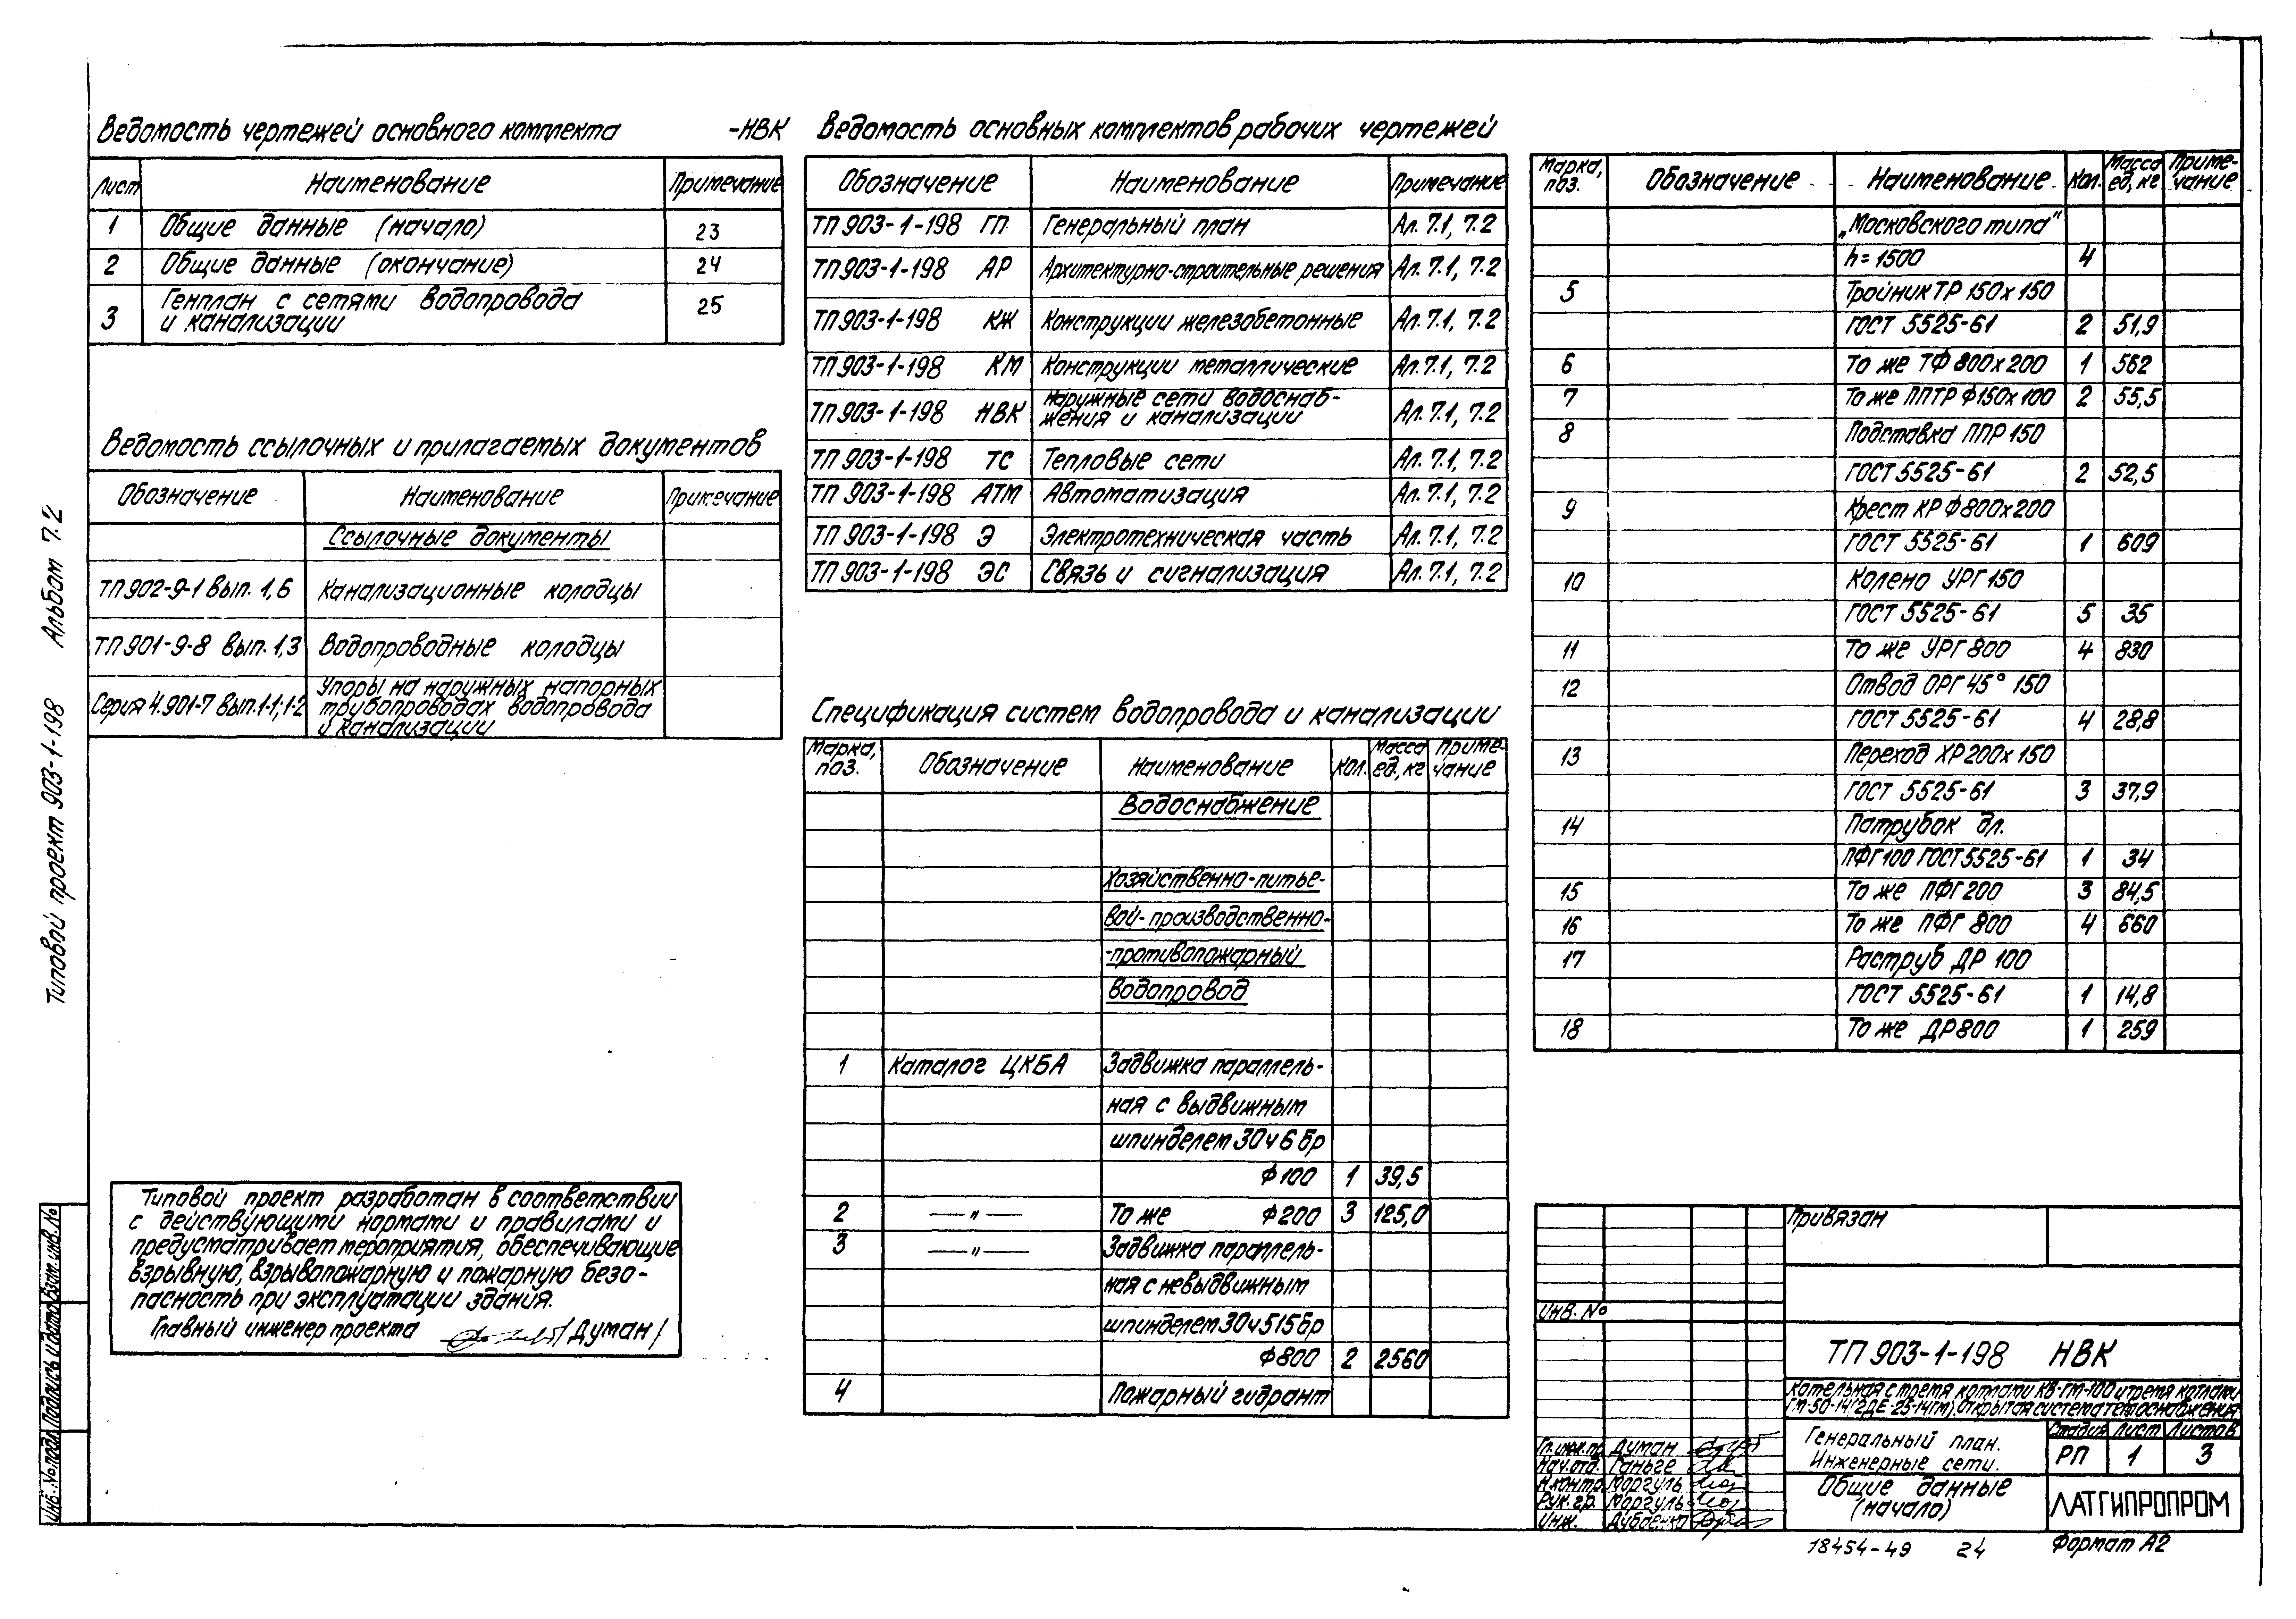 Типовой проект 903-1-198 Альбом 7.2
Ведомость чертежей основного комплекта -НВК
Лист Наименование Примечание
1 Общие данные (начало) 23
2 Общие данные (окончание) 24
3 Генплан с сетями водопровода
и канализации 25
Ведомость ссылочных и прилагаемых документов
Обозначение Наименование Примечание
Ссылочные документы
ТП 902-9-1 вып. 1,6 Канализационные колодцы
ТП 901-9-8 вып. 1,3 Водопроводные колодцы
Серия 4.901-7 вып.1-1; 1-2 Упоры на наружных напорных
трубопроводах водопровода
и канализации
Типовой проект разработан в соответствии
с действующими нормами и правилами и
предусматривает мероприятия, обеспечивающие
взрывную, взрывопожарную и пожарную безо-
пасность при эксплуатации здания.
Главный инженер проекта /Думан/
Ведомость основных комплектов рабочих чертежей
Обозначение Наименование Примечание
ТП 903-1-198 ГП Генеральный план Ал. 7.1, 7.2
ТП 903-1-198 АР Архитектурно-строительные решения Ал. 7.1, 7.2
ТП 903-1-198 КЖ Конструкции железобетонные Ал. 7.1, 7.2
ТП 903-1-198 КМ Конструкции металлические Ал. 7.1, 7.2
ТП 903-1-198 НВК Наружные сети водоснаб-
жения и канализации Ал. 7.1, 7.2
ТП 903-1-198 ТС Тепловые сети Ал. 7.1, 7.2
ТП 903-1-198 АТМ Автоматизация Ал. 7.1, 7.2
ТП 903-1-198 Э Электротехническая часть Ал. 7.1, 7.2
ТП 903-1-198 ЭС Связь и сигнализация Ал. 7.1, 7.2
Спецификация систем водопровода и канализации
Марка, поз. Обозначение Наименование Кол. Масса ед., кг Приме-чание
Водоснабжение
Хозяйственно-питье-
вой-производственно-
-противопожарный
водопровод
1 Каталог ЦКБА Задвижка параллель-
ная с выдвижным
шпинделем 30ч6бр
Ф100 1 39,5
2 —〃— То же Ф200 3 125,0
3 —〃— Задвижка параллель-
ная с невыдвижным
шпинделем 30ч515бр
Ф800 2 2560
4 Пожарный гидрант
Марка, поз. Обозначение Наименование Кол. Масса ед., кг Приме-чание
„Московского типа"
h=1500 4
5 Тройник ТР 150х150
ГОСТ 5525-61 2 51,9
6 То же ТФ 800х200 1 562
7 То же ППТР Ф150х100 2 55,5
8 Подставка ППР 150
ГОСТ 5525-61 2 52,5
9 Крест КР Ф800х200
ГОСТ 5525-61 1 609
10 Колено УРГ 150
ГОСТ 5525-61 5 35
11 То же УРГ 800 4 830
12 Отвод ОРГ 45° 150
ГОСТ 5525-61 4 28,8
13 Переход ХР 200х150
ГОСТ 5525-61 3 37,9
14 Патрубок дл.
ПФГ 100 ГОСТ 5525-61 1 34
15 То же ПФГ 200 3 84,5
16 То же ПФГ 800 4 660
17 Раструб ДР 100
ГОСТ 5525-61 1 14,8
18 То же ДР 800 1 259
Привязан
Инв. №
ТП 903-1-198 НВК
Котельная с тремя котлами КВ-ГМ-100 и тремя котлами
ГМ-50-14(2ДЕ-25-14ГМ). Открытая система теплоснабжения
Генеральный план.
Инженерные сети.
Стадия Лист Листов
РП 1 3
Общие данные
(начало)
ЛАТГИПРОПРОМ
Гл. инж. пр. Думан
Нач. отд. Ганьге
Н. контр. Моргуль
Рук. гр. Моргуль
Инж.
Инв. № подл. Подпись и дата Взам. инв. №
18454-49 24 Формат А2